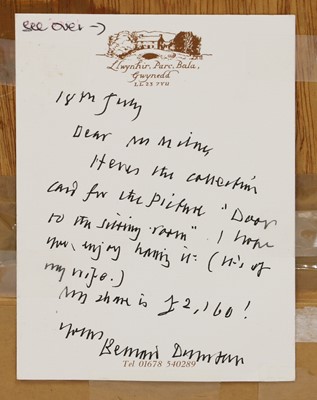 See over →
Llwynhir, Parc, Bala,
Gwynedd
LL23 7YU
18th July
Dear Mr Milnes
Here's the collection
card for the picture "Door
to the sitting room". I hope
you enjoy having it (It's of
my wife.)
My share is £2,160!
Yours
Bernard Dunstan
Tel 01678 540289